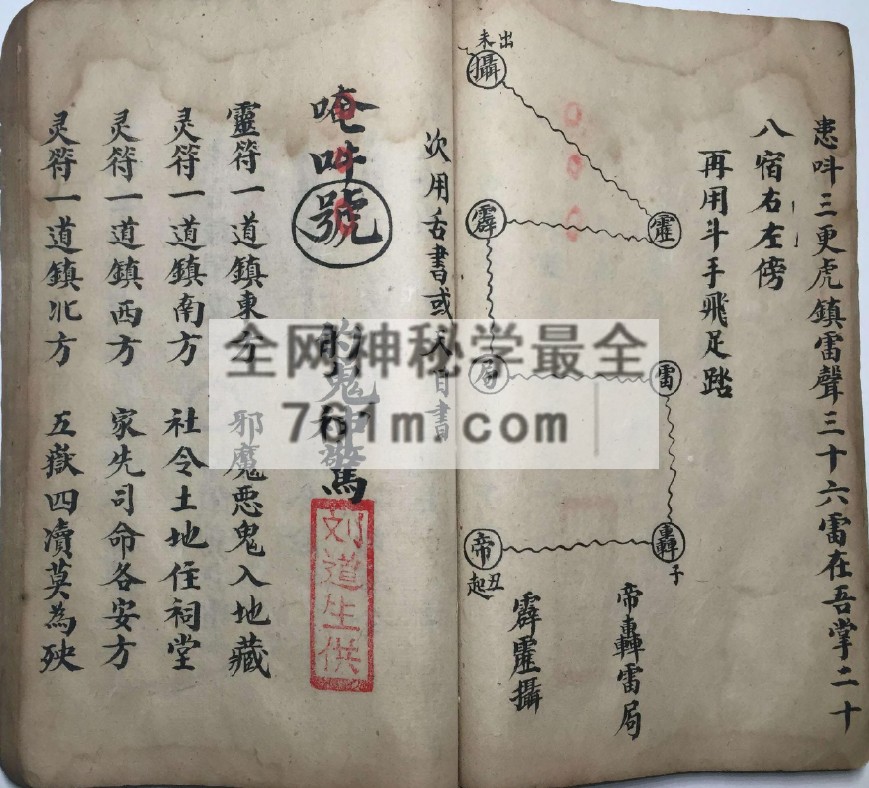 患呌三更虎鎮雷聲三十六雷在吾掌二十
八宿右左傍
再用斗手飛足踏
帝轟雷局
霹靂攝
未出
攝
靂
霹
局
雷
轟
子
帝
丑起
次用舌書或目書
唵吽號 鬼神驚
靈符一道鎮東方 邪魔恶鬼入地藏
灵符一道鎮南方 社令土地住祠堂
灵符一道鎮西方 家先司命各安方
灵符一道鎮北方 五嶽四凟莫為殃
刘道生供
全网神秘学最全
761m.com